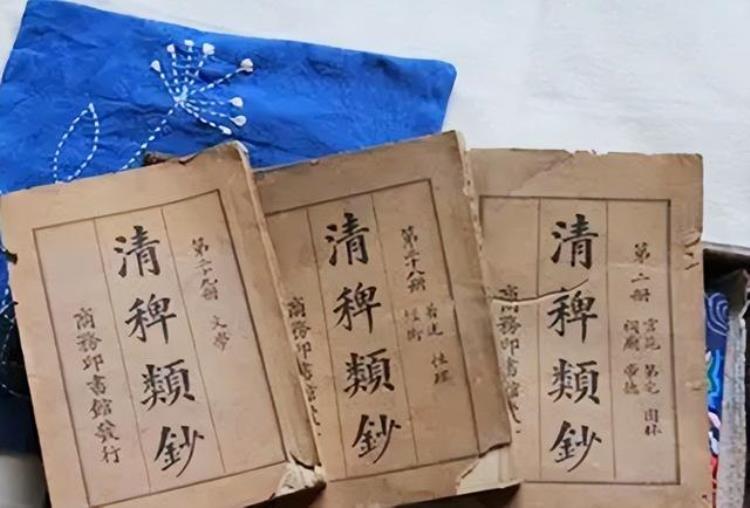 第二十九册 文學
清稗類鈔
商務印書館發行
第二十八册 著述 性理
經術
清稗類鈔
商務印書館
第二册 宮苑 第宅 園林
祠廟 帝德
清稗類鈔
商務印書館